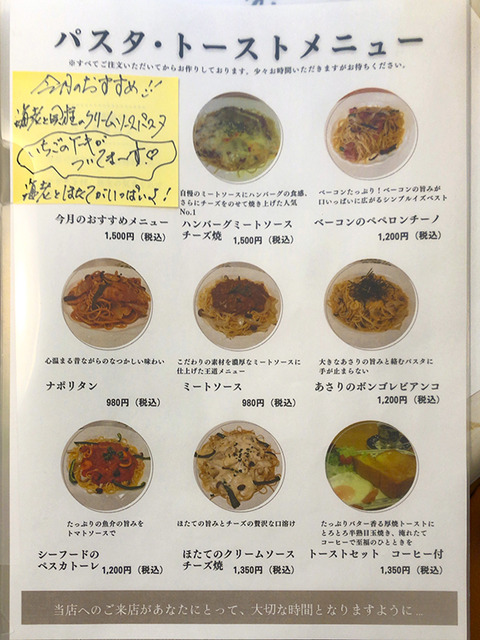 パスタ・トーストメニュー
※すべてご注文いただいてからお作りしております。少々お時間いただきますがお待ちください。
今月のおすすめ!!
海老と帆立のクリームソースパスタ
いちごのケーキが
ついてま〜す♡
海老とほたてがいっぱいよ!
今月のおすすめメニュー
1,500円（税込）
自慢のミートソースにハンバーグの食感、
さらにチーズをのせて焼き上げた人気
No.1
ハンバーグミートソース
チーズ焼 1,500円（税込）
ベーコンたっぷり！ベーコンの旨みが
口いっぱいに広がるシンプルイズベスト
ベーコンのペペロンチーノ
1,200円（税込）
心温まる昔ながらのなつかしい味わい
ナポリタン
980円（税込）
こだわりの素材を濃厚なミートソースに
仕上げた王道メニュー
ミートソース
980円（税込）
大きなあさりの旨みと絡むパスタに
手が止まらない
あさりのボンゴレビアンコ
1,200円（税込）
たっぷりの魚介の旨みを
トマトソースで
シーフードの
ペスカトーレ 1,200円（税込）
ほたての旨みとチーズの贅沢な口溶け
ほたてのクリームソース
チーズ焼 1,350円（税込）
たっぷりバター香る厚焼トーストに
とろとろ半熟目玉焼、淹れたて
コーヒーで至福のひとときを
トーストセット コーヒー付
1,350円（税込）
当店へのご来店があなたにとって、大切な時間となりますように...